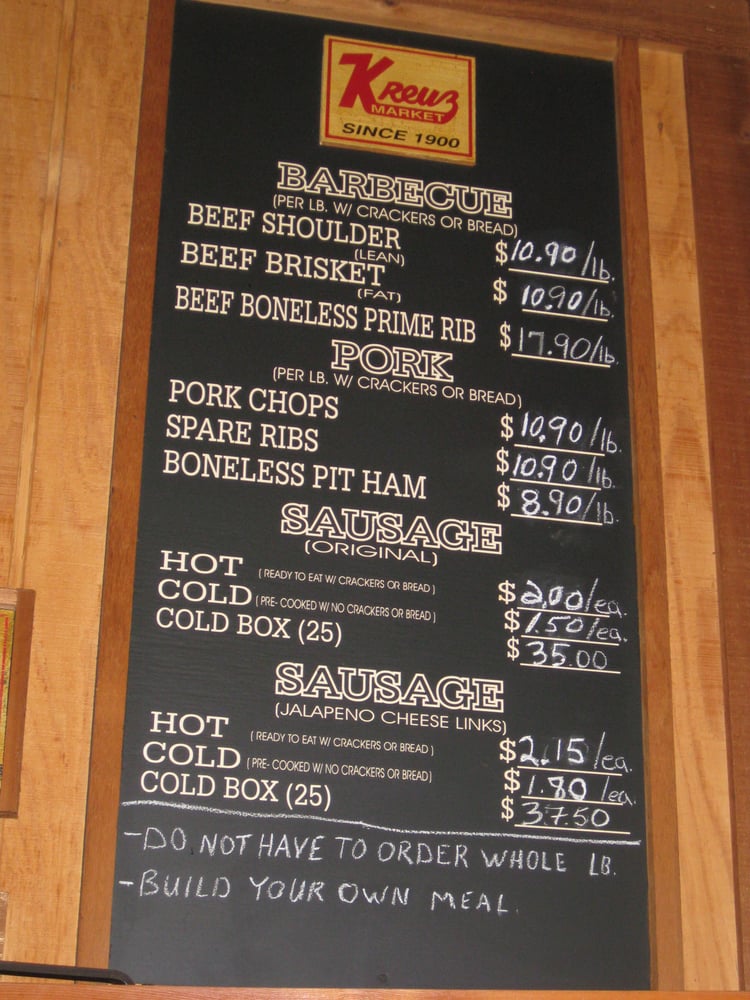 Kreuz
MARKET
SINCE 1900
BARBECUE
(PER LB. W/ CRACKERS OR BREAD)
BEEF SHOULDER $10.90/lb.
(LEAN)
BEEF BRISKET $10.90/lb.
(FAT)
BEEF BONELESS PRIME RIB $17.90/lb.
PORK
(PER LB. W/ CRACKERS OR BREAD)
PORK CHOPS $10.90/lb.
SPARE RIBS $10.90 lb.
BONELESS PIT HAM $8.90/lb.
SAUSAGE
(ORIGINAL)
HOT (READY TO EAT W/ CRACKERS OR BREAD) $2.00/ea.
COLD (PRE- COOKED W/ NO CRACKERS OR BREAD) $1.50/ea.
COLD BOX (25) $35.00
SAUSAGE
(JALAPENO CHEESE LINKS)
HOT (READY TO EAT W/ CRACKERS OR BREAD) $2.15/ea.
COLD (PRE- COOKED W/ NO CRACKERS OR BREAD) $1.80/ea.
COLD BOX (25) $37.50
-DO NOT HAVE TO ORDER WHOLE LB.
-BUILD YOUR OWN MEAL.